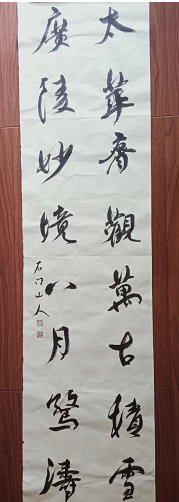 太華奇觀萬古積雪
廣陵妙境八月驚濤
石门山人